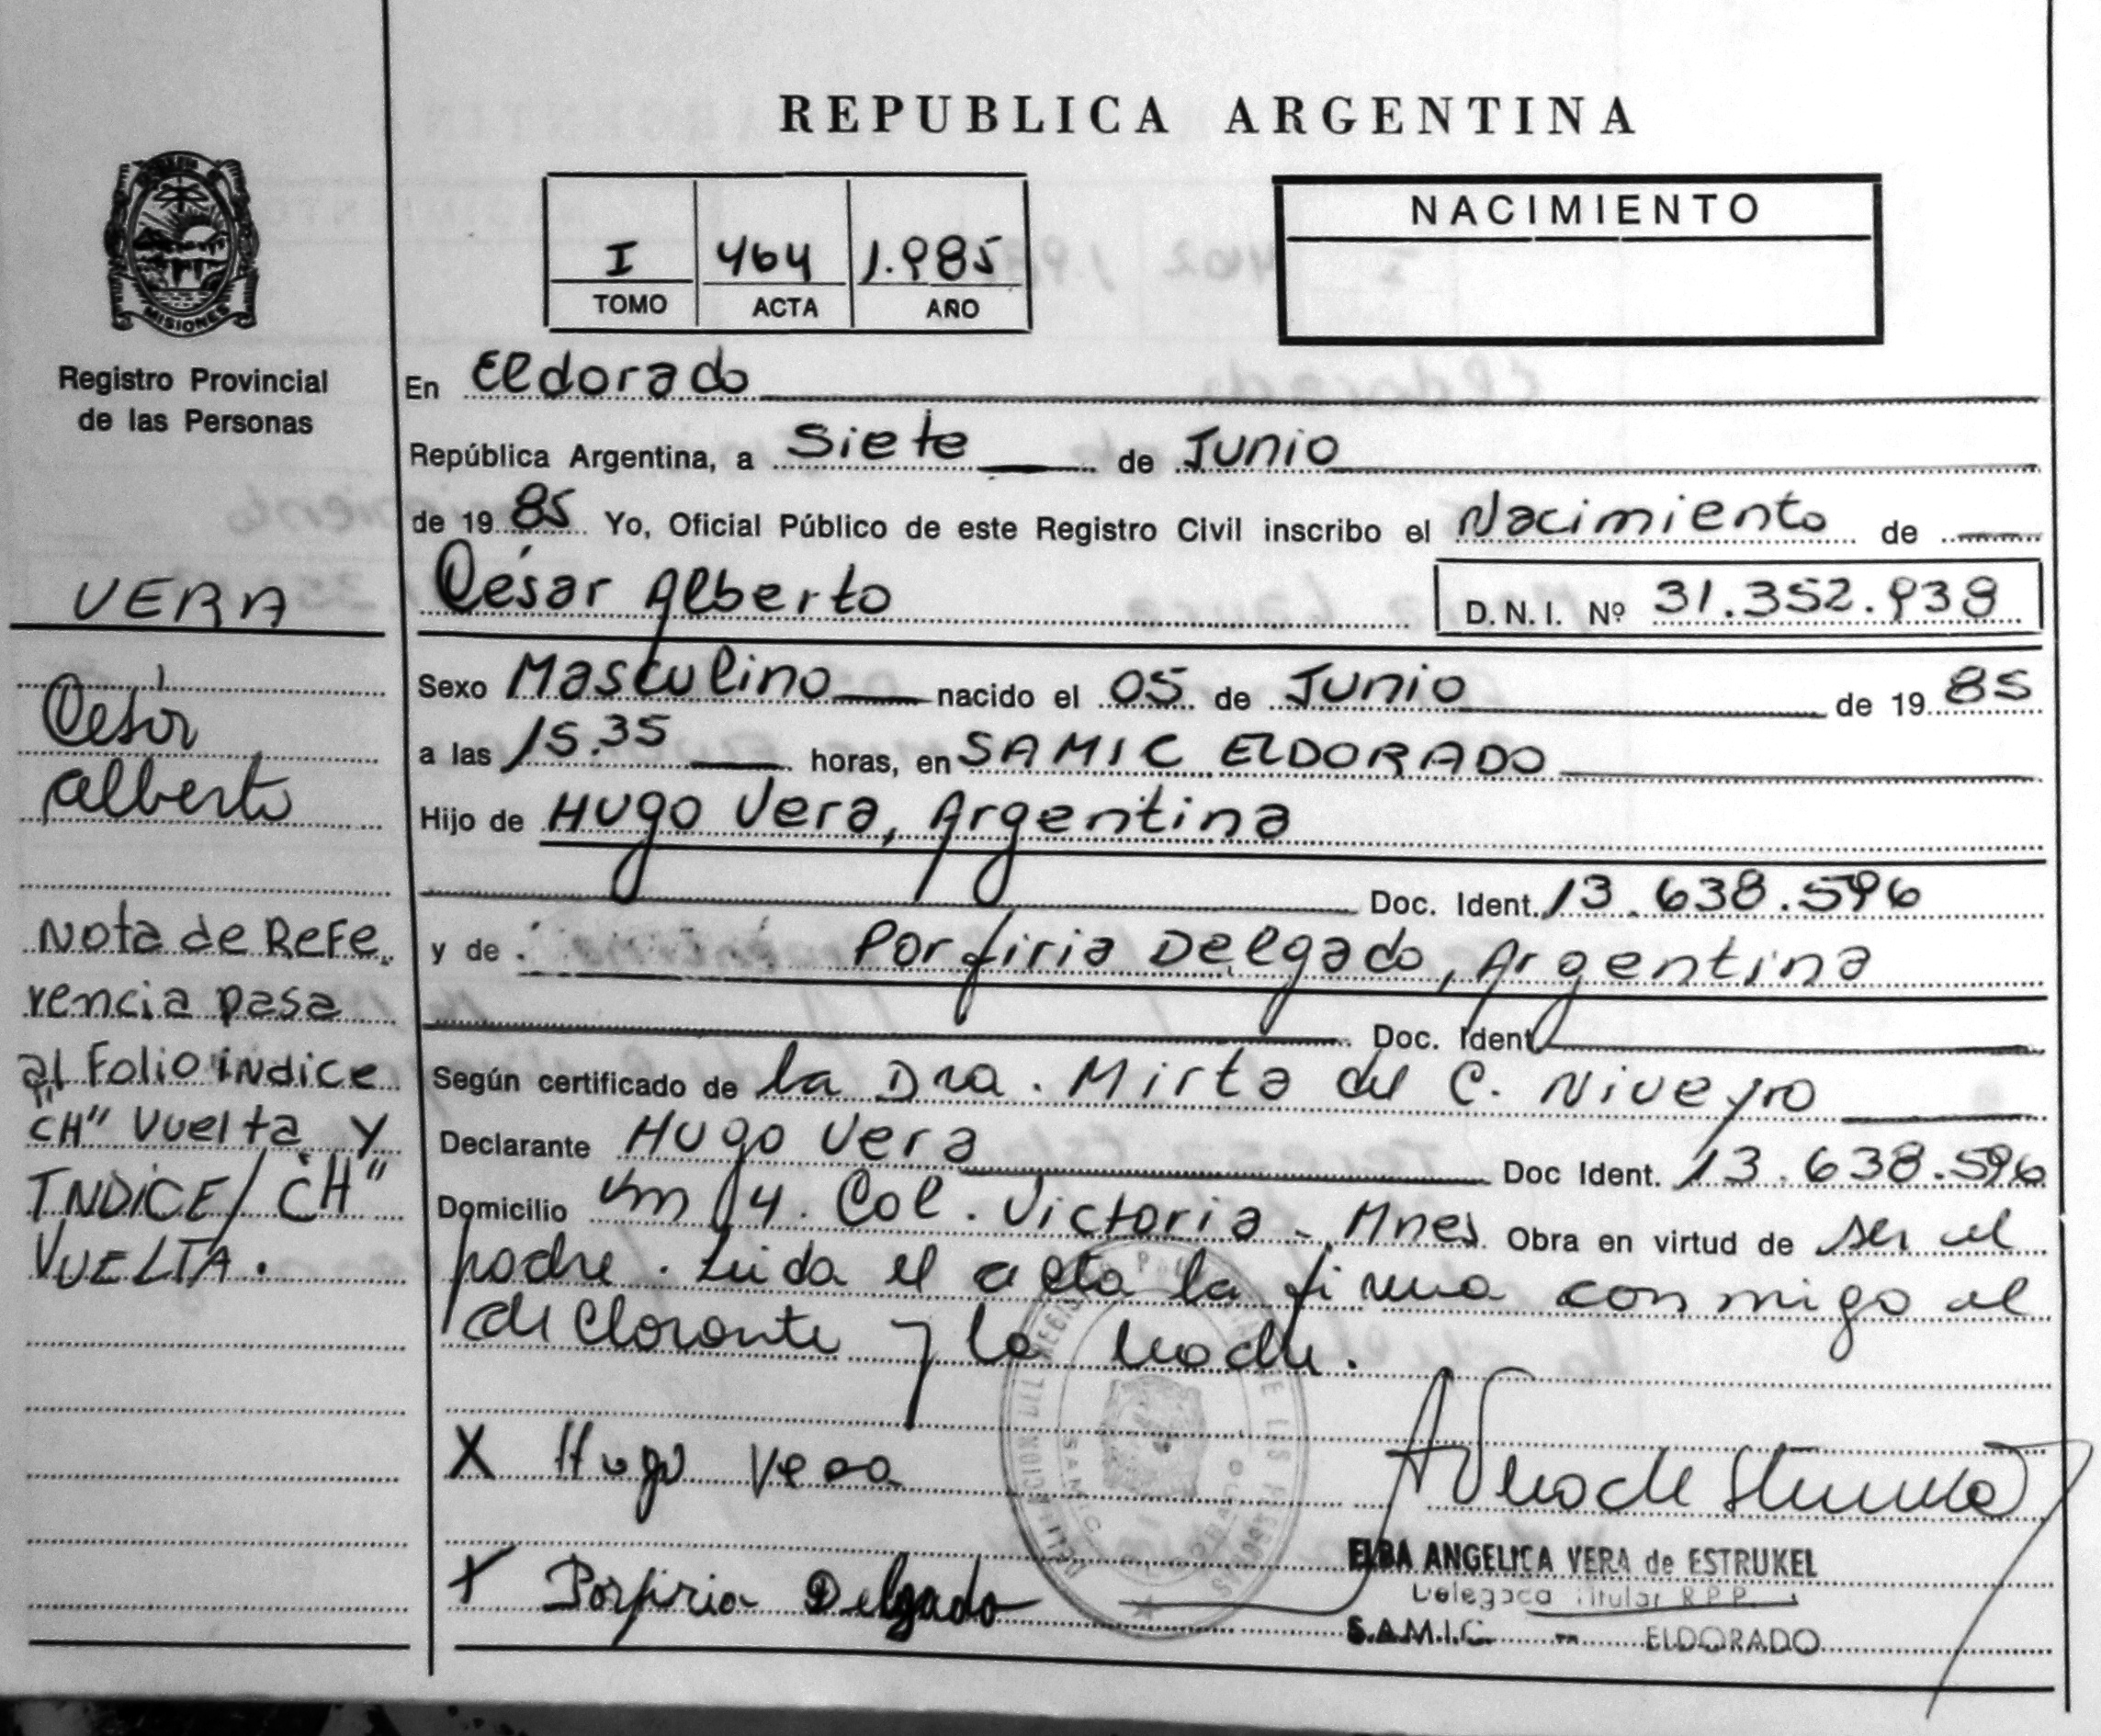 REPUBLICA ARGENTINA
MISIONES
Registro Provincial
de las Personas
I 464 1.985
TOMO ACTA AÑO
NACIMIENTO
En Eldorado
República Argentina, a Siete de Junio
de 1985 Yo, Oficial Público de este Registro Civil inscribo el Nacimiento de
César Alberto D.N.I. Nº 31.352.938
Sexo Masculino nacido el 05 de Junio de 1985
a las 15.35 horas, en SAMIC ELDORADO
Hijo de Hugo Vera, Argentina
Doc. Ident. 13.638.596
y de Porfiria Delgado, Argentina
Doc. Ident
Según certificado de la Dra. Mirta del C. Niveyro
Declarante Hugo Vera Doc Ident. 13.638.596
Domicilio Km 14. Col. Victoria - Mnes Obra en virtud de ser el
padre. Leida el acta la firma conmigo el
declarante y la madre.
X Hugo Vera
X Porfiria Delgado
ELBA ANGELICA VERA de ESTRUKEL
Delegada Titular R.P.P.
S.A.M.I.C. - ELDORADO
VERA
César
Alberto
Nota de Refe
rencia pasa
al Folio indice
"CH" Vuelta y
INDICE/"CH"
VUELTA.